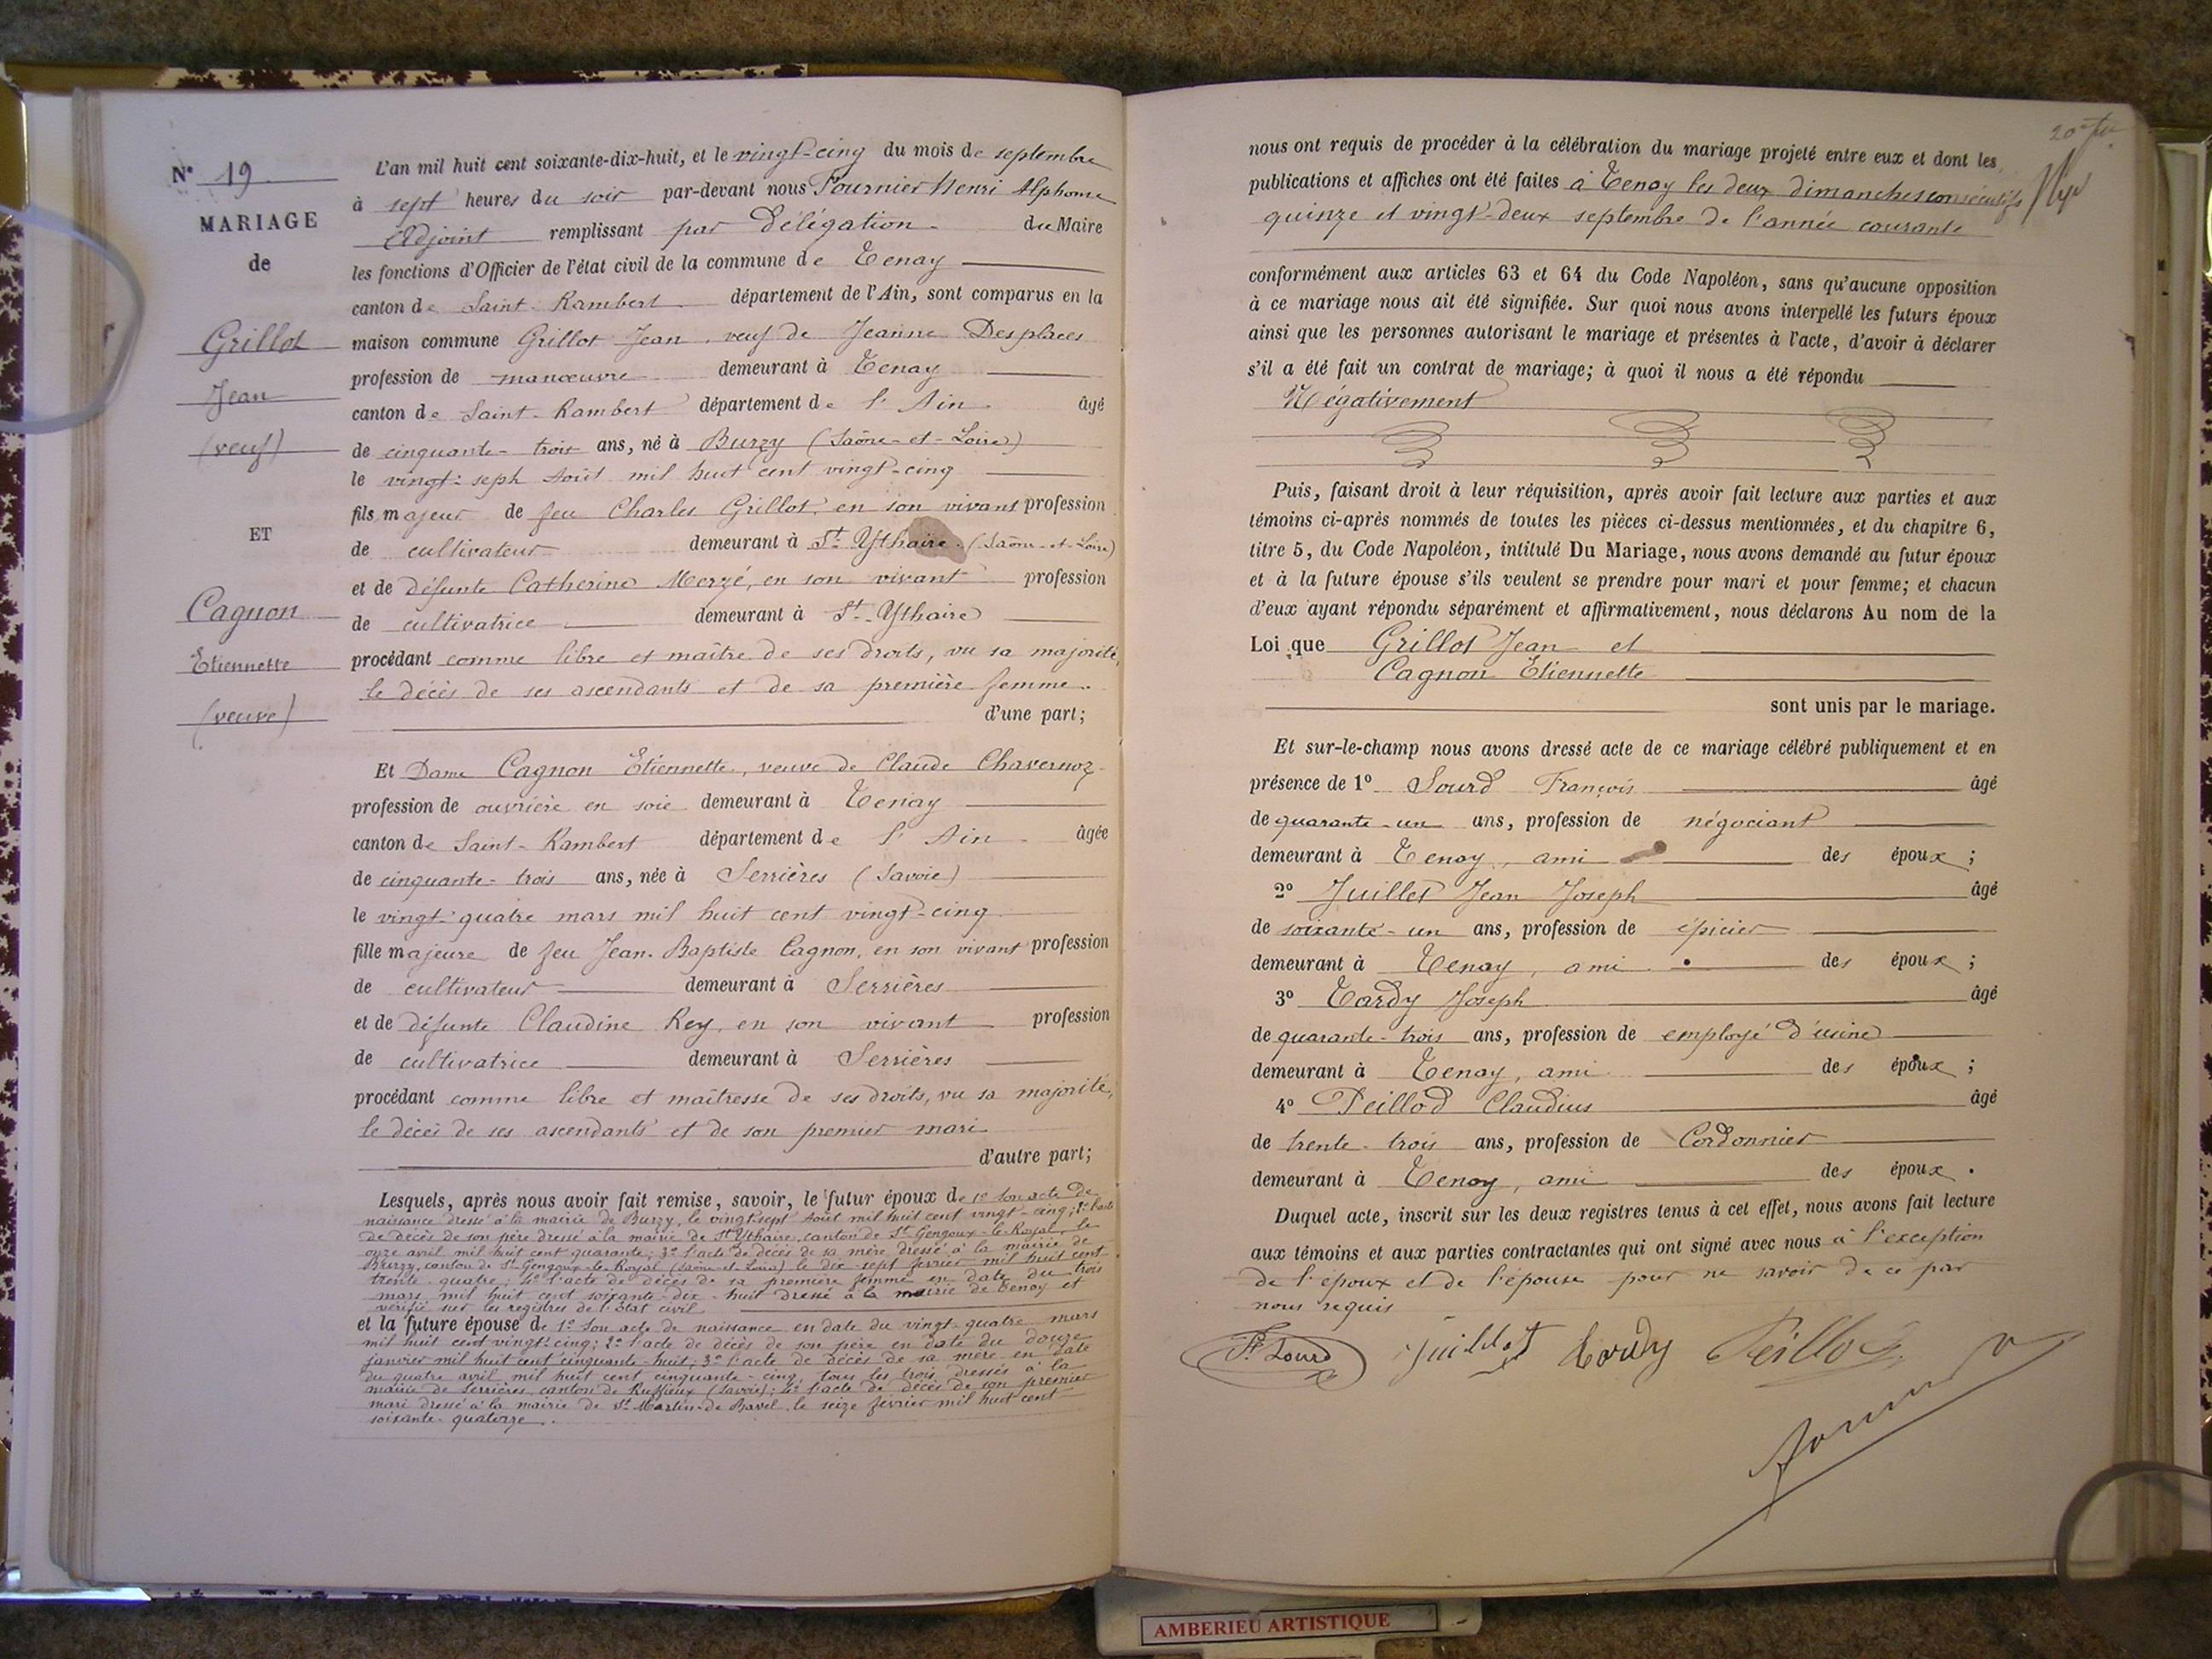 N° 19
MARIAGE
de
Grillot
Jean
(veuf)
ET
Cagnon
Etiennette
(veuve)
L'an mil huit cent soixante-dix-huit, et le vingt-cinq du mois de septembre
à sept heures du soir par-devant nous Fournier Henri Alphonse
Adjoint remplissant par Délégation du Maire
les fonctions d'Officier de l'état civil de la commune de Tenay
canton de Saint-Rambert département de l'Ain, sont comparus en la
maison commune Grillot Jean, veuf de Jeanne Desplaces
profession de manœuvre demeurant à Tenay
canton de Saint-Rambert département de l'Ain âgé
de cinquante-trois ans, né à Burzy (Saône-et-Loire)
le vingt-sept Août mil huit cent vingt-cinq
fils majeur de feu Charles Grillot, en son vivant profession
de cultivateur demeurant à St Ythaire (Saône-et-Loire)
et de défunte Catherine Merzé, en son vivant profession
de cultivatrice demeurant à St-Ythaire
procédant comme libre et maître de ses droits, vu sa majorité,
le décès de ses ascendants et de sa première femme.
d'une part;
Et Dame Cagnon Etiennette, veuve de Claude Chavernoz
profession de ouvrière en soie demeurant à Tenay
canton de Saint-Rambert département de l'Ain âgée
de cinquante-trois ans, née à Serrières (Savoie)
le vingt-quatre mars mil huit cent vingt-cinq
fille majeure de feu Jean-Baptiste Cagnon, en son vivant profession
de cultivateur demeurant à Serrières
et de défunte Claudine Rey, en son vivant profession
de cultivatrice demeurant à Serrières
procédant comme libre et maîtresse de ses droits, vu sa majorité,
le décès de ses ascendants et de son premier mari
d'autre part;
Lesquels, après nous avoir fait remise, savoir, le futur époux de 1° Son acte de
naissance dressé à la mairie de Burzy, le vingt-sept Août mil huit cent vingt-cinq; 2° l'acte
de décès de son père dressé à la mairie de St Ythaire, canton de St Gengoux-le-Royal, le
onze avril mil huit cent quarante; 3° l'acte de décès de sa mère dressé à la mairie de
Burzy, canton de St Gengoux-le-Royal (Saône-et-Loire) le dix-sept février mil huit cent
trente-quatre; 4° l'acte de décès de sa première femme en date du trois
mars mil huit cent soixante-dix-huit dressé à la mairie de Tenay et
vérifié sur les registres de l'état civil
et la future épouse de 1° Son acte de naissance en date du vingt-quatre mars
mil huit cent vingt-cinq; 2° l'acte de décès de son père en date du douze
janvier mil huit cent cinquante-huit; 3° l'acte de décès de sa mère en date
du quatre avril mil huit cent cinquante-cinq, tous les trois dressés à la
mairie de Serrières canton de Ruffieux (Savoie); 4° l'acte de décès de son premier
mari dressé à la mairie de St-Martin-de-Bavel le seize février mil huit cent
soixante-quatorze.
nous ont requis de procéder à la célébration du mariage projeté entre eux et dont les
publications et affiches ont été faites à Tenay les deux dimanches consécutifs
quinze et vingt-deux septembre de l'année courante
conformément aux articles 63 et 64 du Code Napoléon, sans qu'aucune opposition
à ce mariage nous ait été signifiée. Sur quoi nous avons interpellé les futurs époux
ainsi que les personnes autorisant le mariage et présentes à l'acte, d'avoir à déclarer
s'il a été fait un contrat de mariage; à quoi il nous a été répondu
Négativement
Puis, faisant droit à leur réquisition, après avoir fait lecture aux parties et aux
témoins ci-après nommés de toutes les pièces ci-dessus mentionnées, et du chapitre 6,
titre 5, du Code Napoléon, intitulé Du Mariage, nous avons demandé au futur époux
et à la future épouse s'ils veulent se prendre pour mari et pour femme; et chacun
d'eux ayant répondu séparément et affirmativement, nous déclarons Au nom de la
Loi que Grillot Jean et
Cagnon Etiennette
sont unis par le mariage.
Et sur-le-champ nous avons dressé acte de ce mariage célébré publiquement et en
présence de 1° Sourd François âgé
de quarante-un ans, profession de négociant
demeurant à Tenay, ami des époux;
2° Juillet Jean Joseph âgé
de soixante-un ans, profession de épicier
demeurant à Tenay, ami des époux;
3° Tardy Joseph âgé
de quarante-trois ans, profession de employé d'usine
demeurant à Tenay, ami des époux;
4° Peillod Claudius âgé
de trente-trois ans, profession de Cordonnier
demeurant à Tenay, ami des époux.
Duquel acte, inscrit sur les deux registres tenus à cet effet, nous avons fait lecture
aux témoins et aux parties contractantes qui ont signé avec nous à l'exception
de l'époux et de l'épouse pour ne savoir de ce par
nous requis
Fs Sourd Juillet Tardy Peillod
AMBERIEU ARTISTIQUE